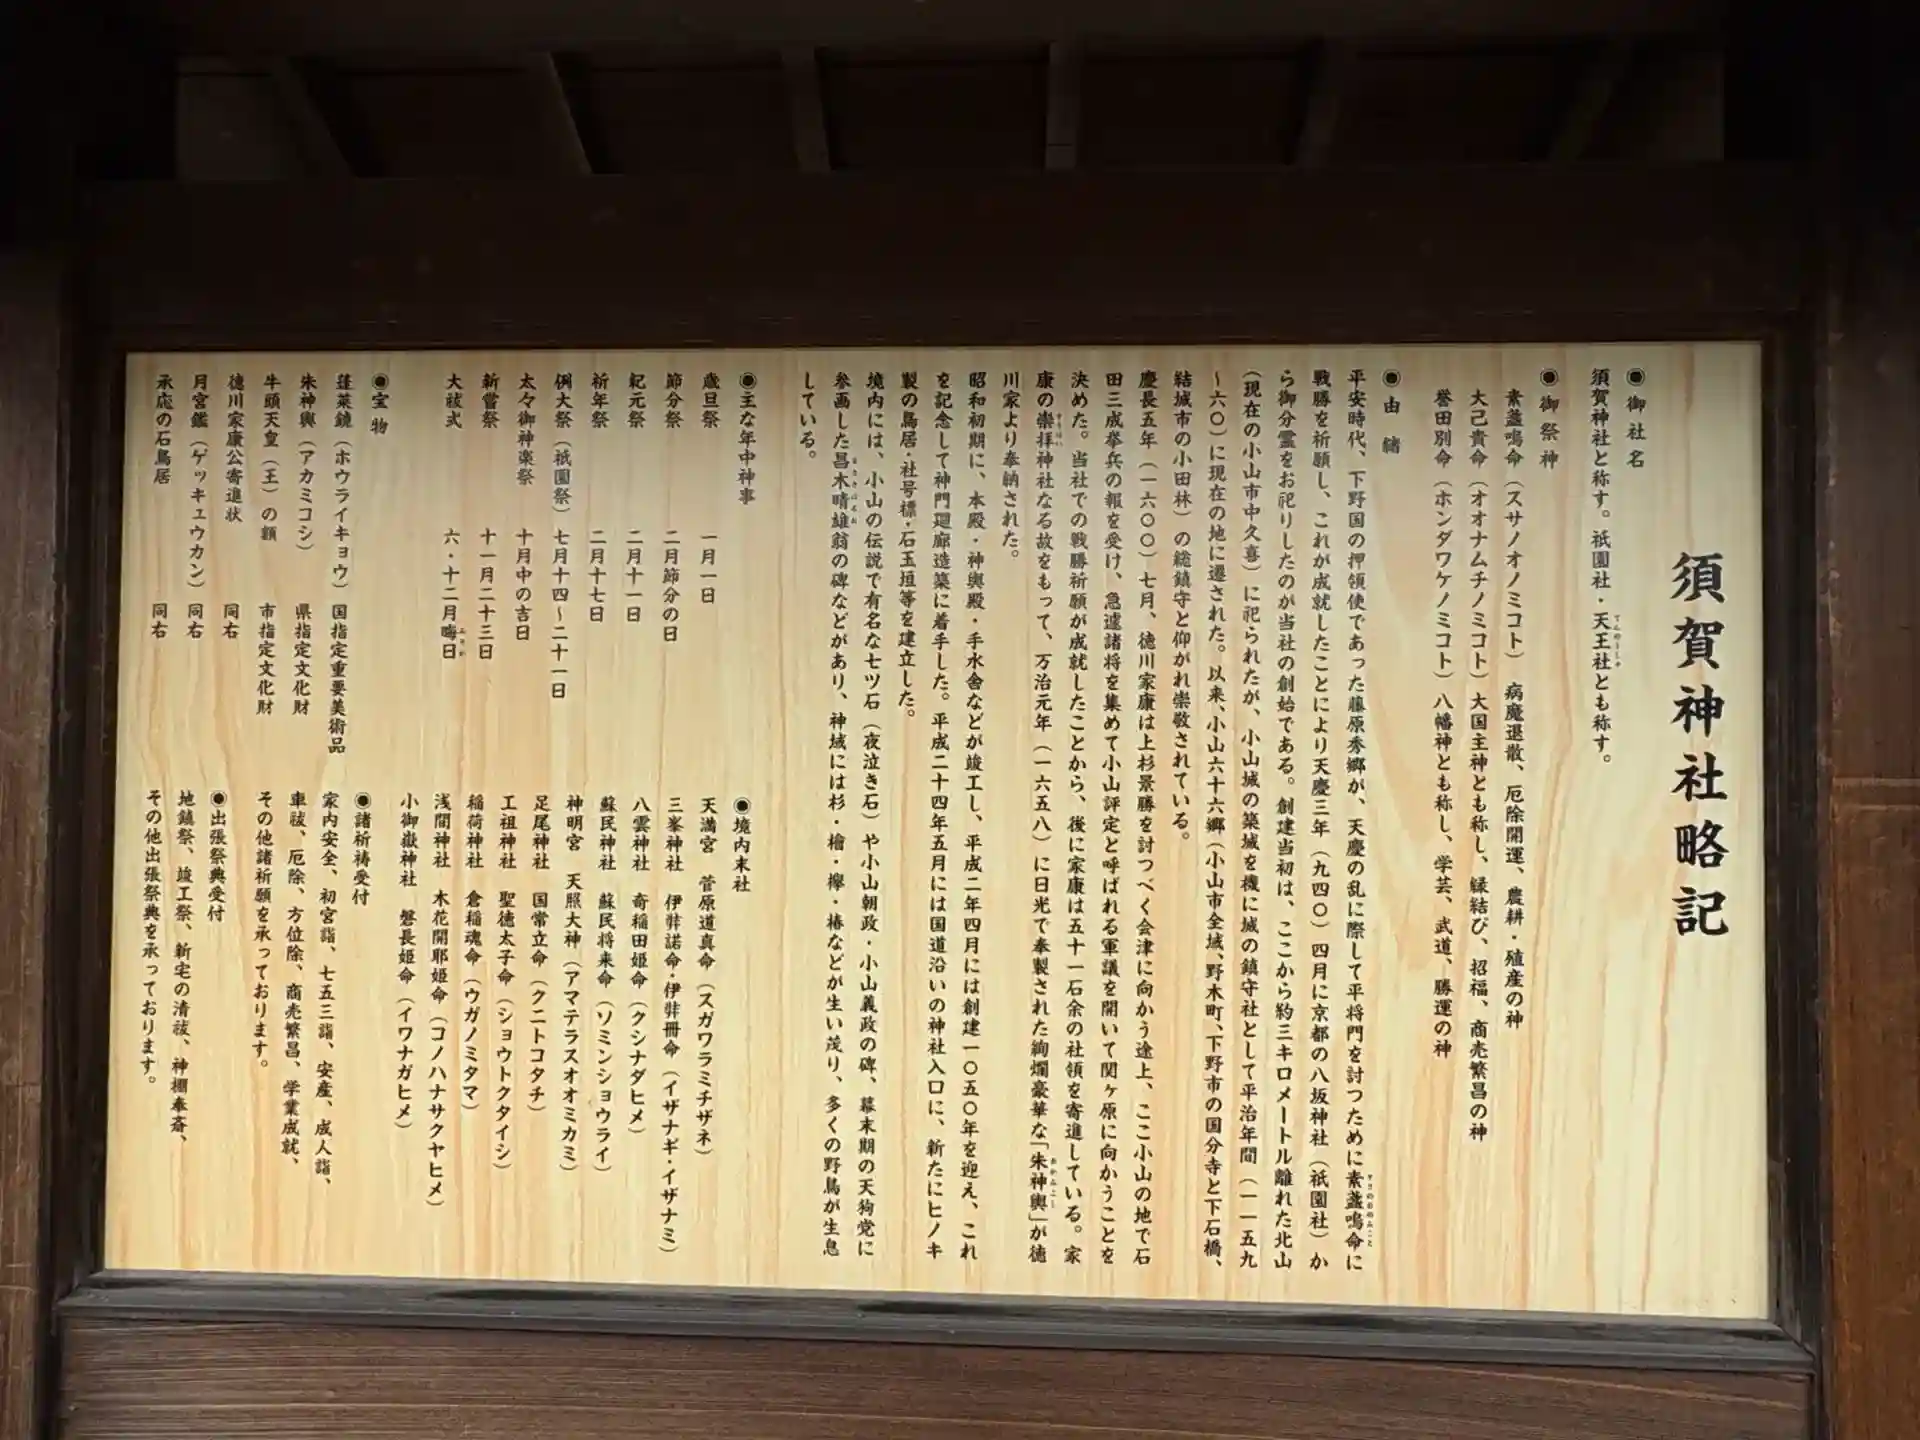 須賀神社略記
◉御社名
須賀神社と称す。祇園社・天王社とも称す。
てんのうしゃ
◉御祭神
素盞鳴命(スサノオノミコト) 病魔退散、厄除開運、農耕・殖産の神
大己貴命(オオナムチノミコト)大国主神とも称し、縁結び、招福、商売繁昌の神
誉田別命(ホンダワケノミコト)八幡神とも称し、学芸、武道、勝運の神
◉由緒
平安時代、下野国の押領使であった藤原秀郷が、天慶の乱に際して平将門を討つために素盞鳴命に
すさのおのみこと
戦勝を祈願し、これが成就したことにより天慶三年(九四〇)四月に京都の八坂神社(祇園社)か
ら御分霊をお祀りしたのが当社の創始である。創建当初は、ここから約三キロメートル離れた北山
(現在の小山市中久喜)に祀られたが、小山城の築城を機に城の鎮守社として平治年間(一一五九
~六〇)に現在の地に遷された。以来、小山六十六郷(小山市全域、野木町、下野市の国分寺と下石橋、
結城市の小田林)の総鎮守と仰がれ崇敬されている。
慶長五年(一六〇〇)七月、徳川家康は上杉景勝を討つべく会津に向かう途上、ここ小山の地で石
田三成挙兵の報を受け、急遽諸将を集めて小山評定と呼ばれる軍議を開いて関ヶ原に向かうことを
決めた。当社での戦勝祈願が成就したことから、後に家康は五十一石余の社領を寄進している。家
康の崇拝神社なる故をもって、万治元年(一六五八)に日光で奉製された絢爛豪華な「朱神輿」が徳
すうはい
あかみこし
川家より奉納された。
昭和初期に、本殿・神輿殿・手水舎などが竣工し、平成二年四月には創建一〇五〇年を迎え、これ
を記念して神門廻廊造築に着手した。平成二十四年五月には国道沿いの神社入口に、新たにヒノキ
製の鳥居・社号標・石玉垣等を建立した。
境内には、小山の伝説で有名な七ツ石(夜泣き石)や小山朝政・小山義政の碑、幕末期の天狗党に
参画した昌木晴雄翁の碑などがあり、神域には杉・檜・欅・椿などが生い茂り、多くの野鳥が生息
まさきはるお
している。
◉主な年中神事
歳旦祭 一月一日
節分祭 二月節分の日
紀元祭 二月十一日
祈年祭 二月十七日
例大祭(祇園祭) 七月十四~二十一日
太々御神楽祭 十月中の吉日
新嘗祭 十一月二十三日
大祓式 六・十二月晦日
◉境内末社
天満宮 菅原道真命(スガワラミチザネ)
三峯神社 伊弉諾命・伊弉冊命(イザナギ・イザナミ)
八雲神社 奇稲田姫命(クシナダヒメ)
蘇民神社 蘇民将来命(ソミンショウライ)
神明宮 天照大神(アマテラスオオミカミ)
足尾神社 国常立命(クニトコタチ)
工祖神社 聖徳太子命(ショウトクタイシ)
稲荷神社 倉稲魂命(ウガノミタマ)
浅間神社 木花開耶姫命(コノハナサクヤヒメ)
小御嶽神社 磐長姫命(イワナガヒメ)
◉宝物
蓬莱鏡(ホウライキョウ) 国指定重要美術品
朱神輿(アカミコシ) 県指定文化財
牛頭天皇(王)の額 市指定文化財
徳川家康公寄進状 同右
月宮鑑(ゲッキュウカン) 同右
承応の石鳥居 同右
◉諸祈祷受付
家内安全、初宮詣、七五三詣、安産、成人詣、
車祓、厄除、方位除、商売繁昌、学業成就、
その他諸祈願を承っております。
◉出張祭典受付
地鎮祭、竣工祭、新宅の清祓、神棚奉斎、
その他出張祭典を承っております。